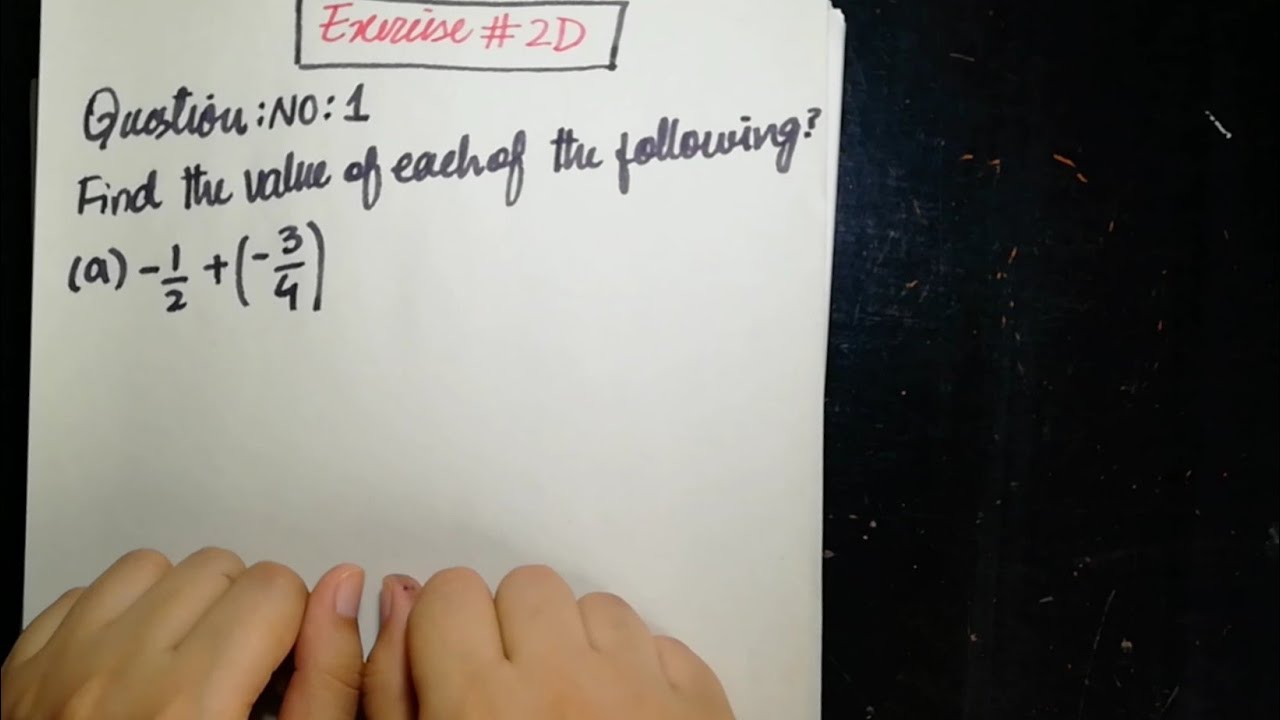 Exercise #2D
Question:NO:1
Find the value of each of the following?
(a) -1/2 + (-3/4)